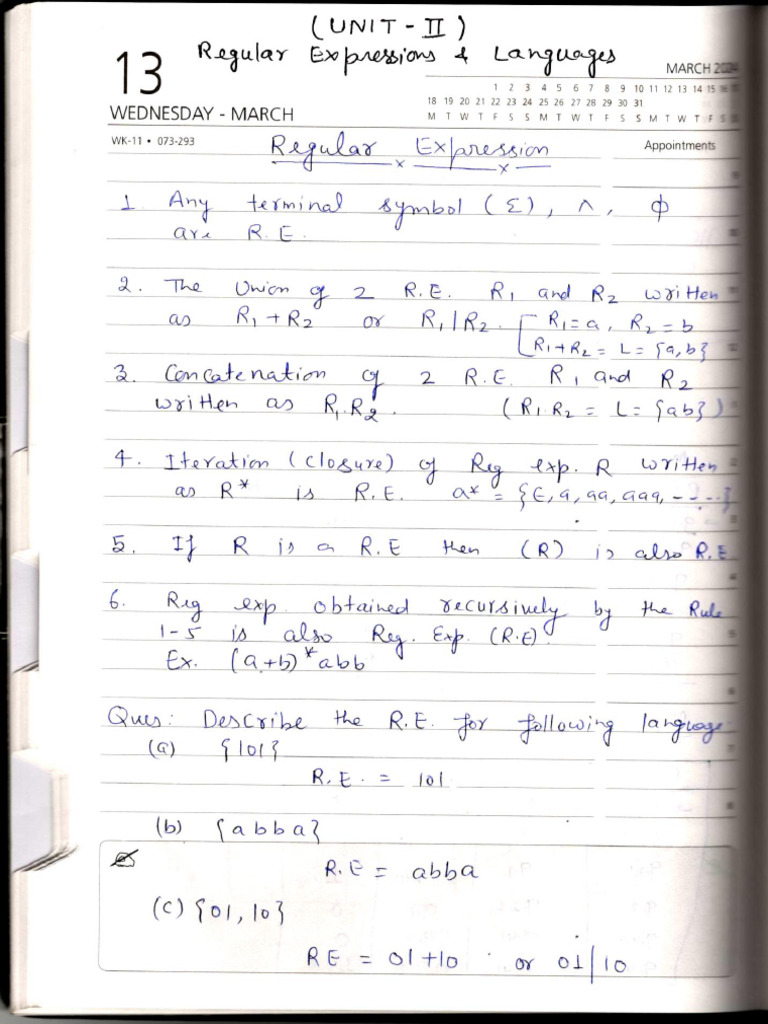 (UNIT - II)
Regular Expressions & Languages
13
MARCH 2024
1 2 3 4 5 6 7 8 9 10 11 12 13 14 15 16 17
18 19 20 21 22 23 24 25 26 27 28 29 30 31
WEDNESDAY - MARCH
M T W T F S S M T W T F S S M T W T F S S
WK-11 • 073-293
Regular Expression
Appointments
1 Any terminal symbol (Σ), ∧, φ
are R.E.
2. The Union of 2 R.E. R1 and R2 written
as R1 + R2 or R1/R2. [ R1 = a, R2 = b
R1+R2 = L = {a,b}
3. Concatenation of 2 R.E. R1 and R2
written as R1.R2. (R1.R2 = L = {ab})
4. Iteration (closure) of Reg exp. R written
as R* is R.E. a* = {ε, a, aa, aaa, ----}
5. If R is a R.E then (R) is also R.E
6. Reg exp. obtained recursively by the Rule
1-5 is also Reg. Exp. (R.E).
Ex. (a+b)*abb
Ques: Describe the R.E. for following language
(a) {101}
R.E. = 101
(b) {abba}
R.E = abba
(C) {01, 10}
RE = 01+10 or 01/10